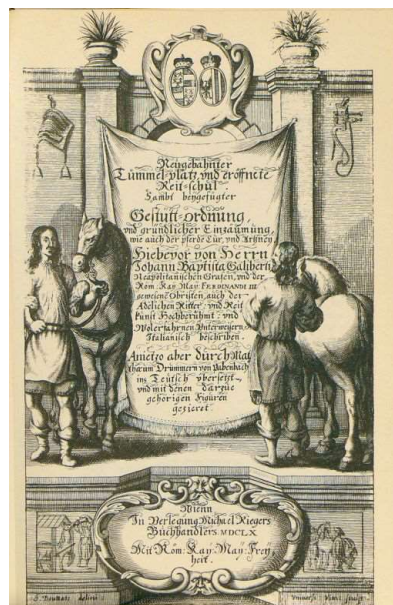 Neugebahnter
Tummel-platz, vnd eröffnete
Reit-schul,
Sambt beygefügter
Gestutt-ordnung,
vnd gründlicher Einzäumung,
wie auch der pferde Cur, vnd Artzney
Hiebevor von Herrn
Johann Baptista Galiberti
Neapolitanischen Grafen, vnd der
Röm: Kay: May: FERDINANDI III
gewesene Obristen, auch der
Adelichen Ritter: vnd Reit
kunst Hochberühmt: vnd
Wolerfahrnen Unterweisern,
Italianisch beschriben.
Anietzo aber durch Mat
thæum Drummern von Pabenbach
ins Teutsch vbersetzt,
vnd mit denen darzue
gehörigen Figuren
gezieret
Wienn
In Verlegung Michael Riegers
Buchhändlers MDCLX
Mit Röm: Kay: May: Frey
heit.